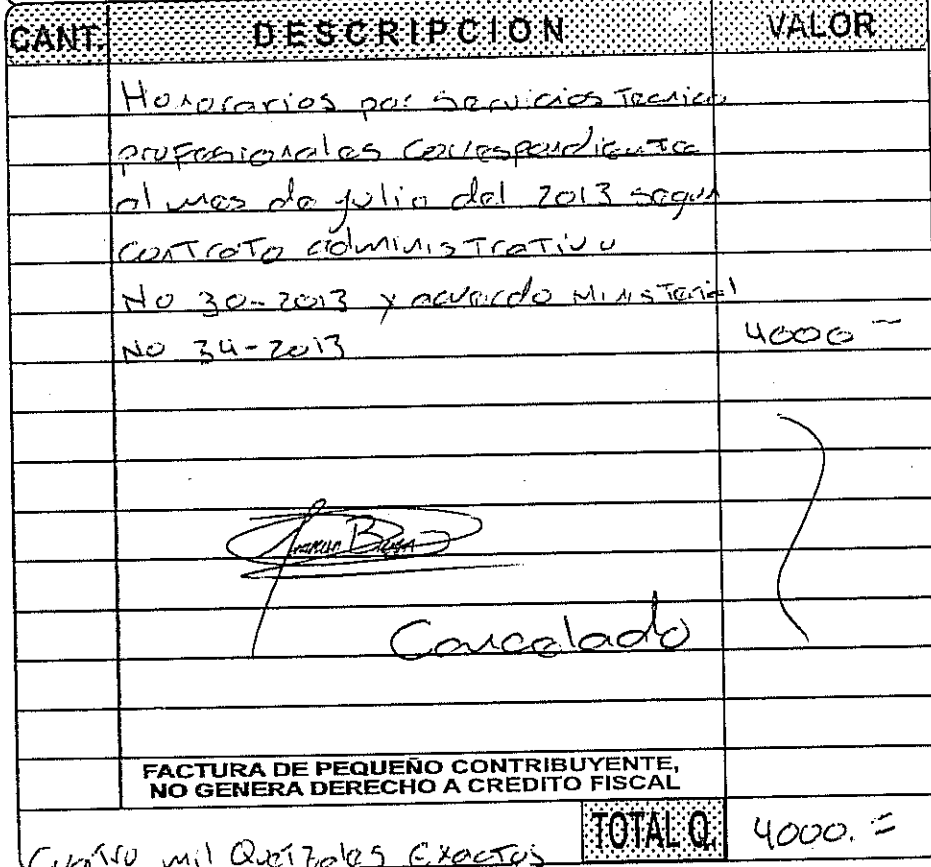 CANT. DESCRIPCION VALOR
Honorarios por Servicios Tecnico
profesionales Correspondiente
al mes de julio del 2013 segun
Contrato administrativo
No 30-2013 y acuerdo Ministerial
No 34-2013 4000.-
Cancelado
FACTURA DE PEQUEÑO CONTRIBUYENTE,
NO GENERA DERECHO A CREDITO FISCAL
TOTAL Q. 4000.=
Cuatro mil Quetzales Exactos